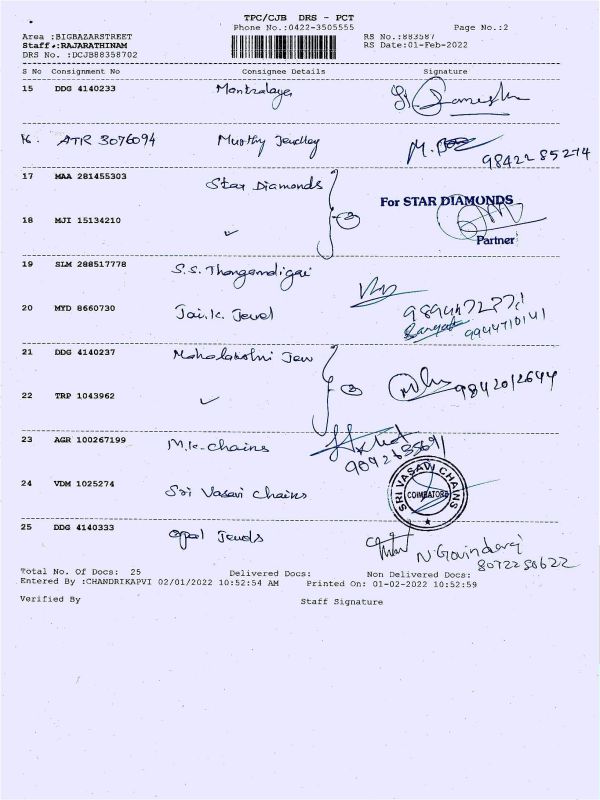 TPC/CJB DRS - PCT
Phone No.:0422-3505555 Page No.:2
Area :BIGBAZARSTREET RS No.:883587
Staff :RAJARATHINAM RS Date:01-Feb-2022
DRS No. :DCJB88358702
S No Consignment No Consignee Details Signature
15 DDG 4140233 Mantralaya
16. ATR 3076094 Murthy Jewellery 9842285274
17 MAA 281455303 Star Diamonds
For STAR DIAMONDS
18 MJI 15134210
Partner
19 SLM 288517778 S.S. Thangamaligai
20 MYD 8660730 Jai.k. Jewel
9944710141
21 DDG 4140237 Mahalakshmi Jew
22 TRP 1043962 9842012644
23 AGR 100267199 M.k. chains
24 VDM 1025274 Sri Vasavi Chains
SRI VASAW CHAINS
COIMBATORE
25 DDG 4140333 opal Jewels
N Govindaraj
8072250622
Total No. Of Docs: 25 Delivered Docs: Non Delivered Docs:
Entered By :CHANDRIKAPVI 02/01/2022 10:52:54 AM Printed On: 01-02-2022 10:52:59
Verified By Staff Signature